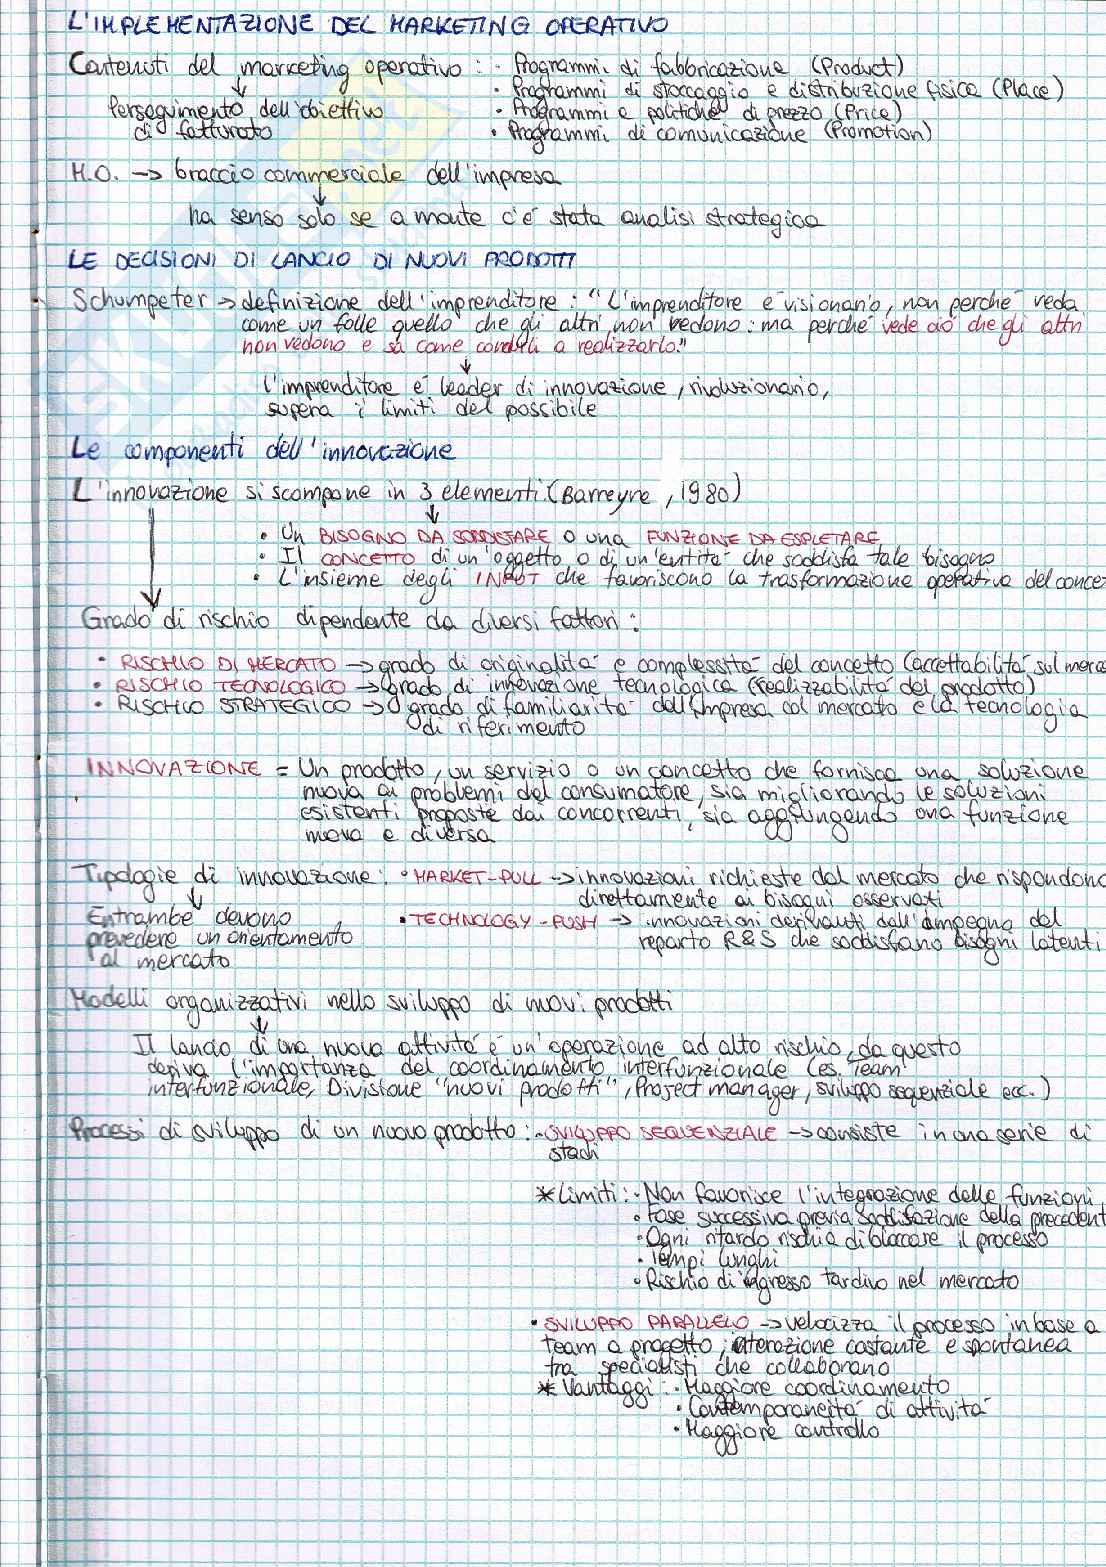 L'IMPLEMENTAZIONE DEL MARKETING OPERATIVO
Contenuti del marketing operativo : · Programmi di fabbricazione (Product)
· Programmi di stoccaggio e distribuzione fisica (Place)
Perseguimento dell'obiettivo · Programmi e politiche di prezzo (Price)
di fatturato · Programmi di comunicazione (Promotion)
M.O. -> braccio commerciale dell'impresa
ha senso solo se a monte c'è stata analisi strategica
LE DECISIONI DI LANCIO DI NUOVI PRODOTTI
Schumpeter -> definizione dell'imprenditore : "L'imprenditore è visionario, non perchè veda
come un folle quello che gli altri non vedono : ma perchè vede ciò che gli altri
non vedono e sa come condurli a realizzarlo."
L'imprenditore è leader di innovazione, rivoluzionario,
supera i limiti del possibile
Le componenti dell'innovazione
L'innovazione si scompone in 3 elementi (Barreyre, 1980)
· Un BISOGNO DA SODDISFARE o una FUNZIONE DA ESPLETARE
· Il CONCETTO di un oggetto o di un'entità che soddisfa tale bisogno
· L'insieme degli INPUT che favoriscono la trasformazione operativa del conce
Grado di rischio dipendente da diversi fattori :
· RISCHIO DI MERCATO -> grado di originalità e complessità del concetto (accettabilità sul merca
· RISCHIO TECNOLOGICO -> grado di innovazione tecnologica (realizzabilità del prodotto)
· RISCHIO STRATEGICO -> grado di familiarità dell'impresa col mercato e la tecnologia
di riferimento
INNOVAZIONE = Un prodotto, un servizio o un concetto che fornisce una soluzione
nuova ai problemi del consumatore, sia migliorando le soluzioni
esistenti proposte dai concorrenti, sia aggiungendo una funzione
nuova e diversa
Tipologie di innovazione : · MARKET-PULL -> innovazioni richieste dal mercato che rispondono
direttamente ai bisogni osservati
Entrambe devono · TECHNOLOGY-PUSH -> innovazioni derivanti dall'impegno del
prevedere un orientamento reparto R&S che soddisfano bisogni latenti
al mercato
Modelli organizzativi nello sviluppo di nuovi prodotti
Il lancio di una nuova attività è un'operazione ad alto rischio, da questo
deriva l'importanza del coordinamento interfunzionale (es. Team
interfunzionale, Divisione "nuovi prodotti", Project manager, sviluppo sequenziale ecc.)
Processi di sviluppo di un nuovo prodotto : · SVILUPPO SEQUENZIALE -> consiste in una serie di
stadi
* Limiti : · Non favorisce l'integrazione delle funzioni
· Fase successiva previa soddisfazione della precedent
· Ogni ritardo rischia di bloccare il processo
· Tempi lunghi
· Rischio di ingresso tardivo nel mercato
· SVILUPPO PARALLELO -> velocizza il processo in base a
team a progetto, interazione costante e spontanea
tra specialisti che collaborano
* Vantaggi : · Maggiore coordinamento
· Contemporaneità di attività
· Maggiore controllo